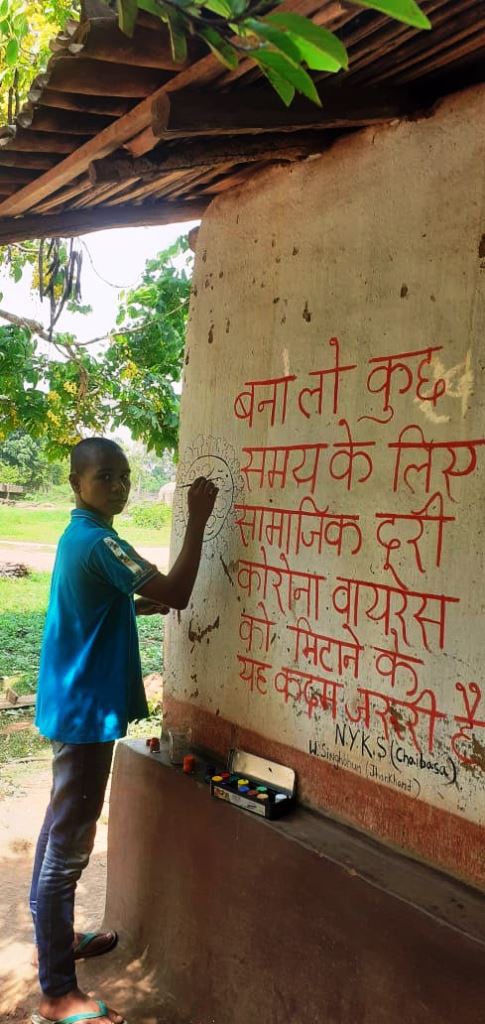 बना लो कुछ
समय के लिए
सामाजिक दूरी
कोरोना वायरेस
को मिटाने के
यह कदम जरूरी है
N.Y.K.S (Chaibasa)
W. Singhbhum (Jharkhand)